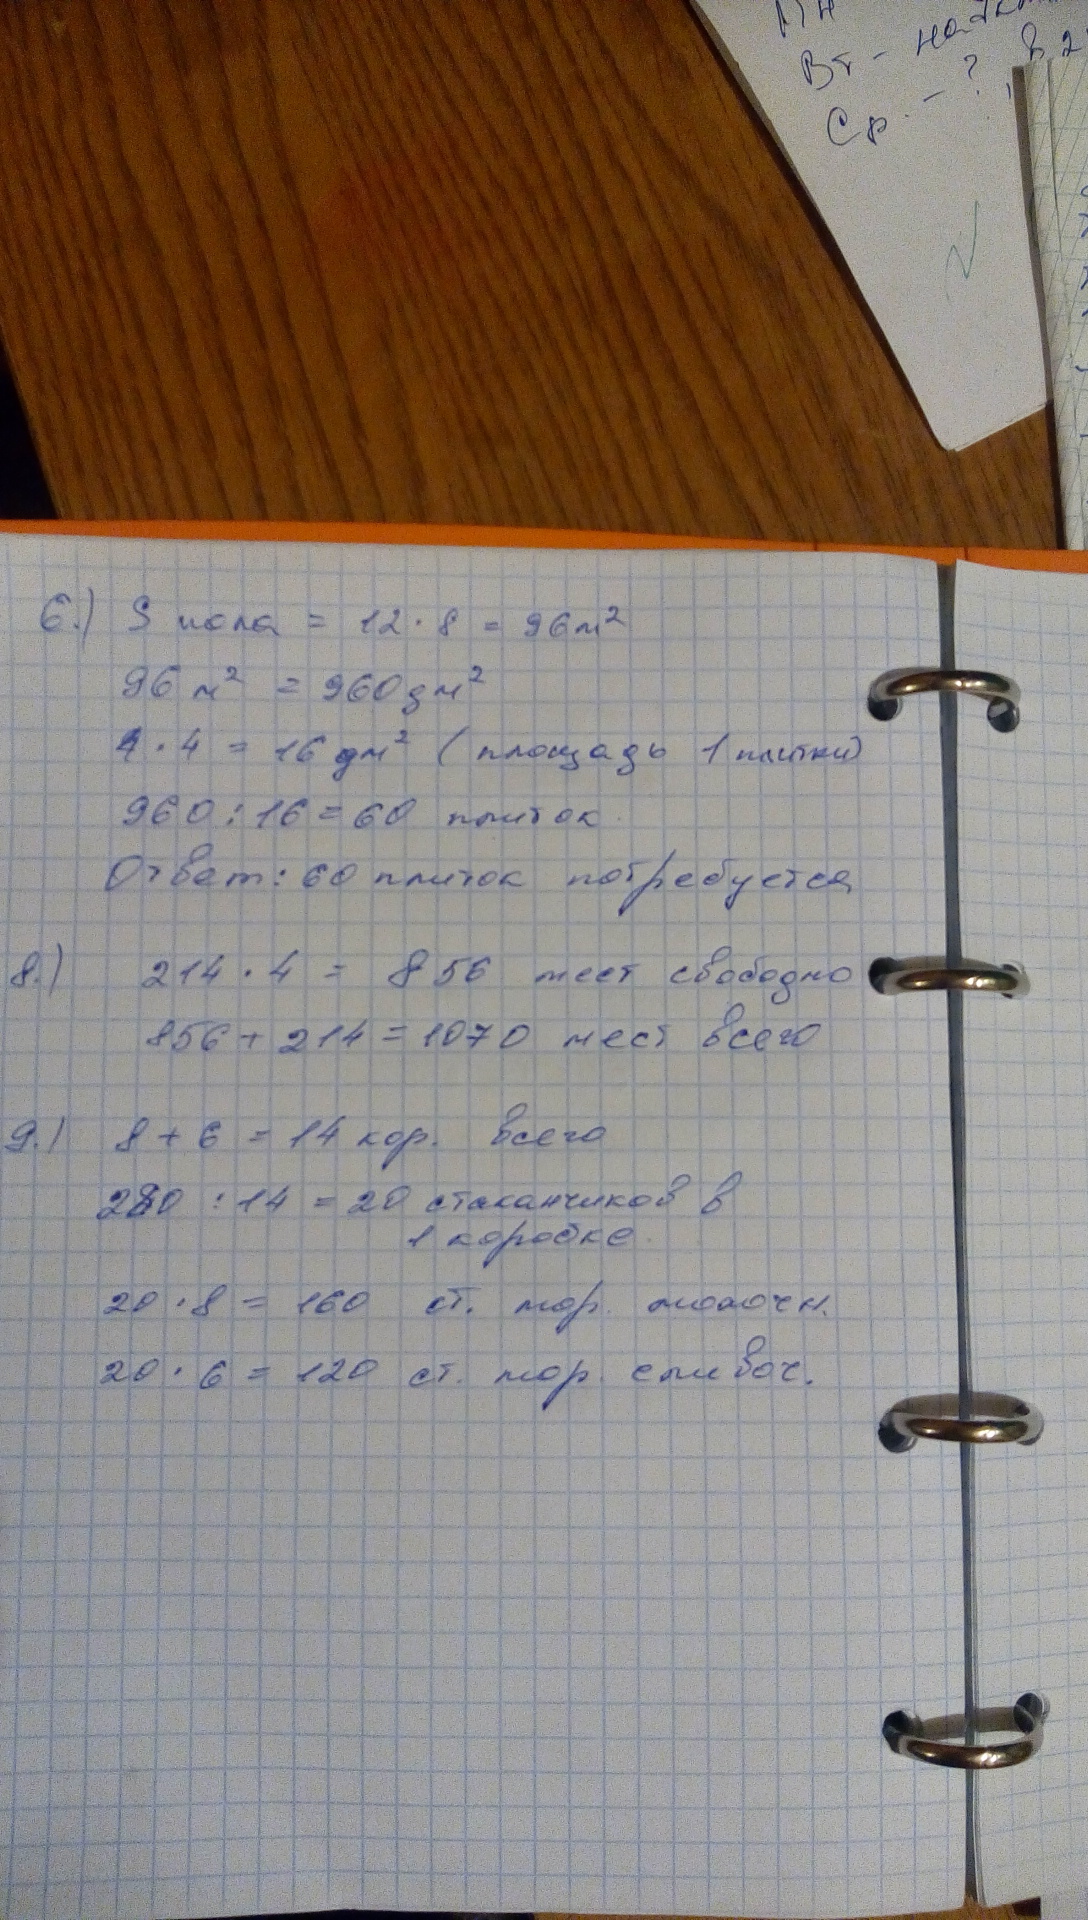 Вт -
Ср. - ?
6.) S пола = 12 · 8 = 96 м²
96 м² = 960 дм²
4 · 4 = 16 дм² (площадь 1 плитки)
960 : 16 = 60 плиток.
Ответ: 60 плиток потребуется
8.) 214 · 4 = 856 мест свободно
856 + 214 = 1070 мест всего
9.) 8 + 6 = 14 кор. всего
280 : 14 = 20 стаканчиков в
1 коробке.
20 · 8 = 160 ст. мор. молочн.
20 · 6 = 120 ст. мор. сливоч.